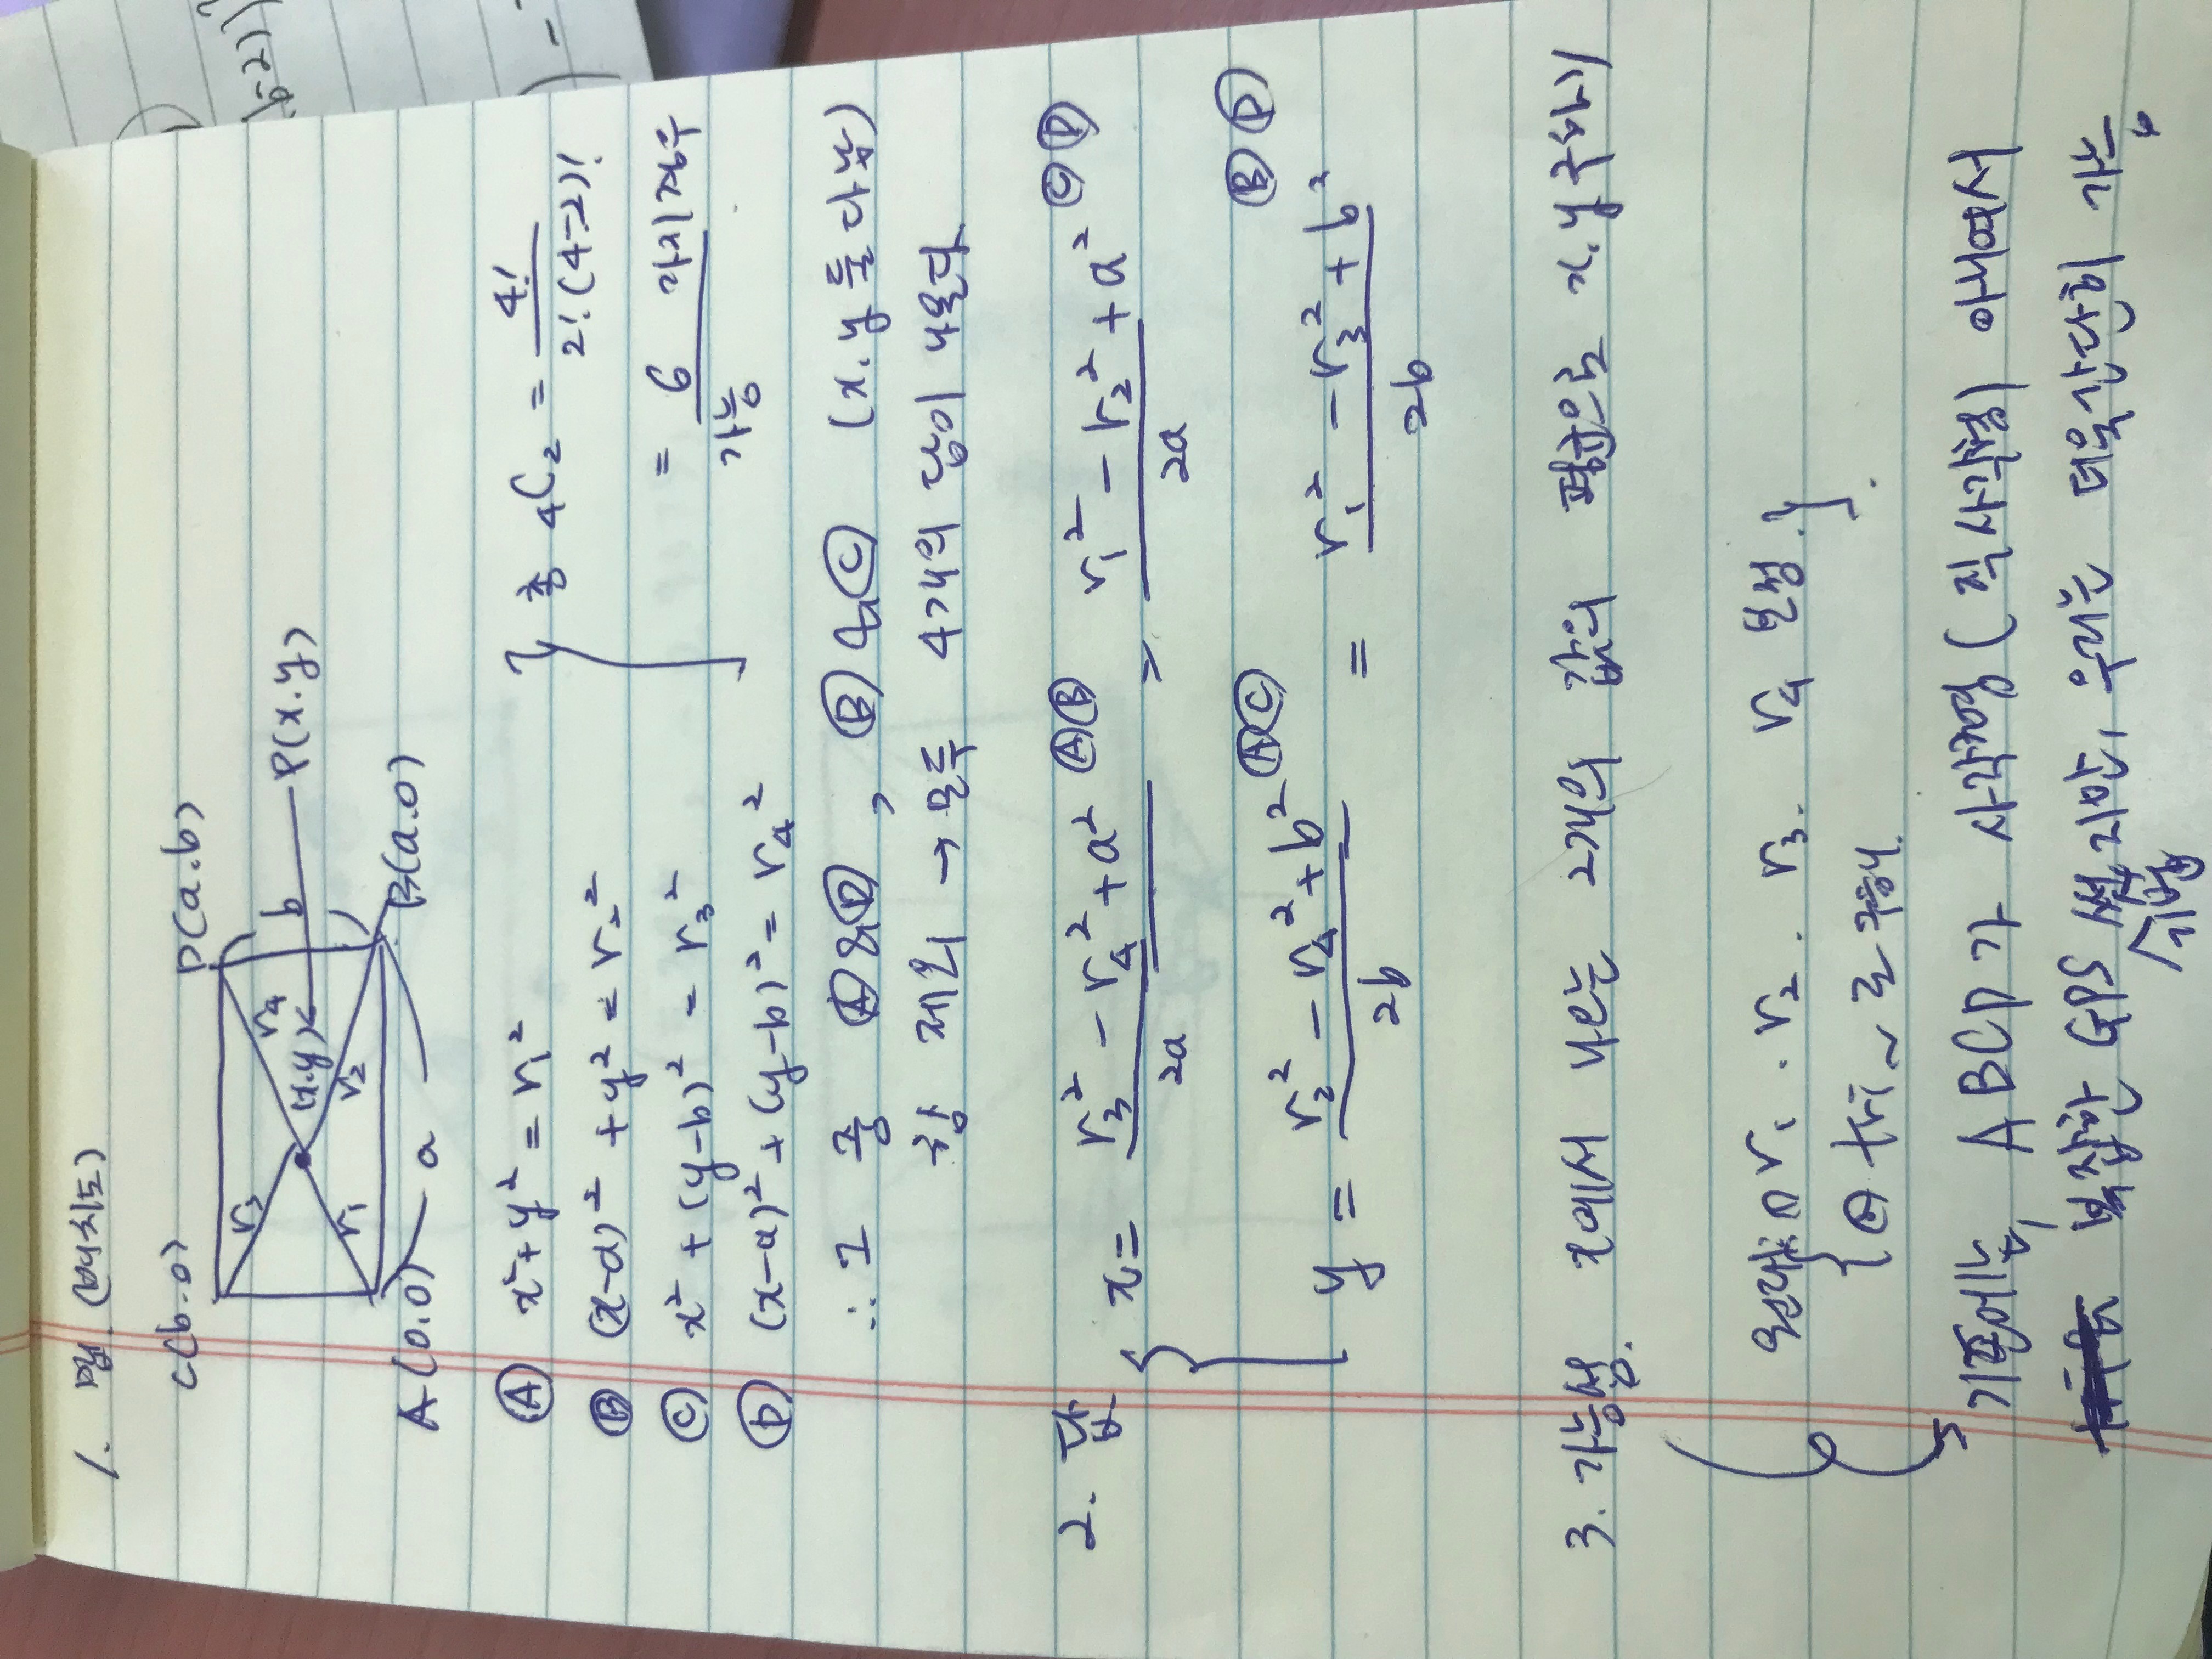 1. 맵. (배치도)
C(b.0) D(a.b)
r₃ r₄
(x.y) b P(x.y)
r₁ r₂
A(0.0) a B(a.0)
Ⓐ x² + y² = r₁²
총 ₄C₂ = 4! / 2!(4-2)!
Ⓑ (x-a)² + y² = r₂²
Ⓒ x² + (y-b)² = r₃²
= 6 가지 경우
가능
Ⓓ (x-a)² + (y-b)² = r₄²
∴ 그 중 Ⓐ&Ⓓ, Ⓑ&Ⓒ (x.y 둘다남)
항 제외 → 모두 4개의 답이 나온다
2. 답
x = (r₃² - r₄² + a²) / 2a ⒶⒷ = (r₁² - r₂² + a²) / 2a ⒸⒹ
y = (r₂² - r₄² + b²) / 2b ⒶⒸ = (r₁² - r₃² + b²) / 2b ⒷⒹ
3. 가능성. x에서 나오는 2개의 값의 평균으로 x.y구하기
r₁. r₂. r₃. r₄ 보정.
로 구해.
기존에는, ABCD가 사각형(직사각형) 아니여서
복잡한 GPS 썼지만, 우리는 더욱간단히 가능
기법
(b-2))²